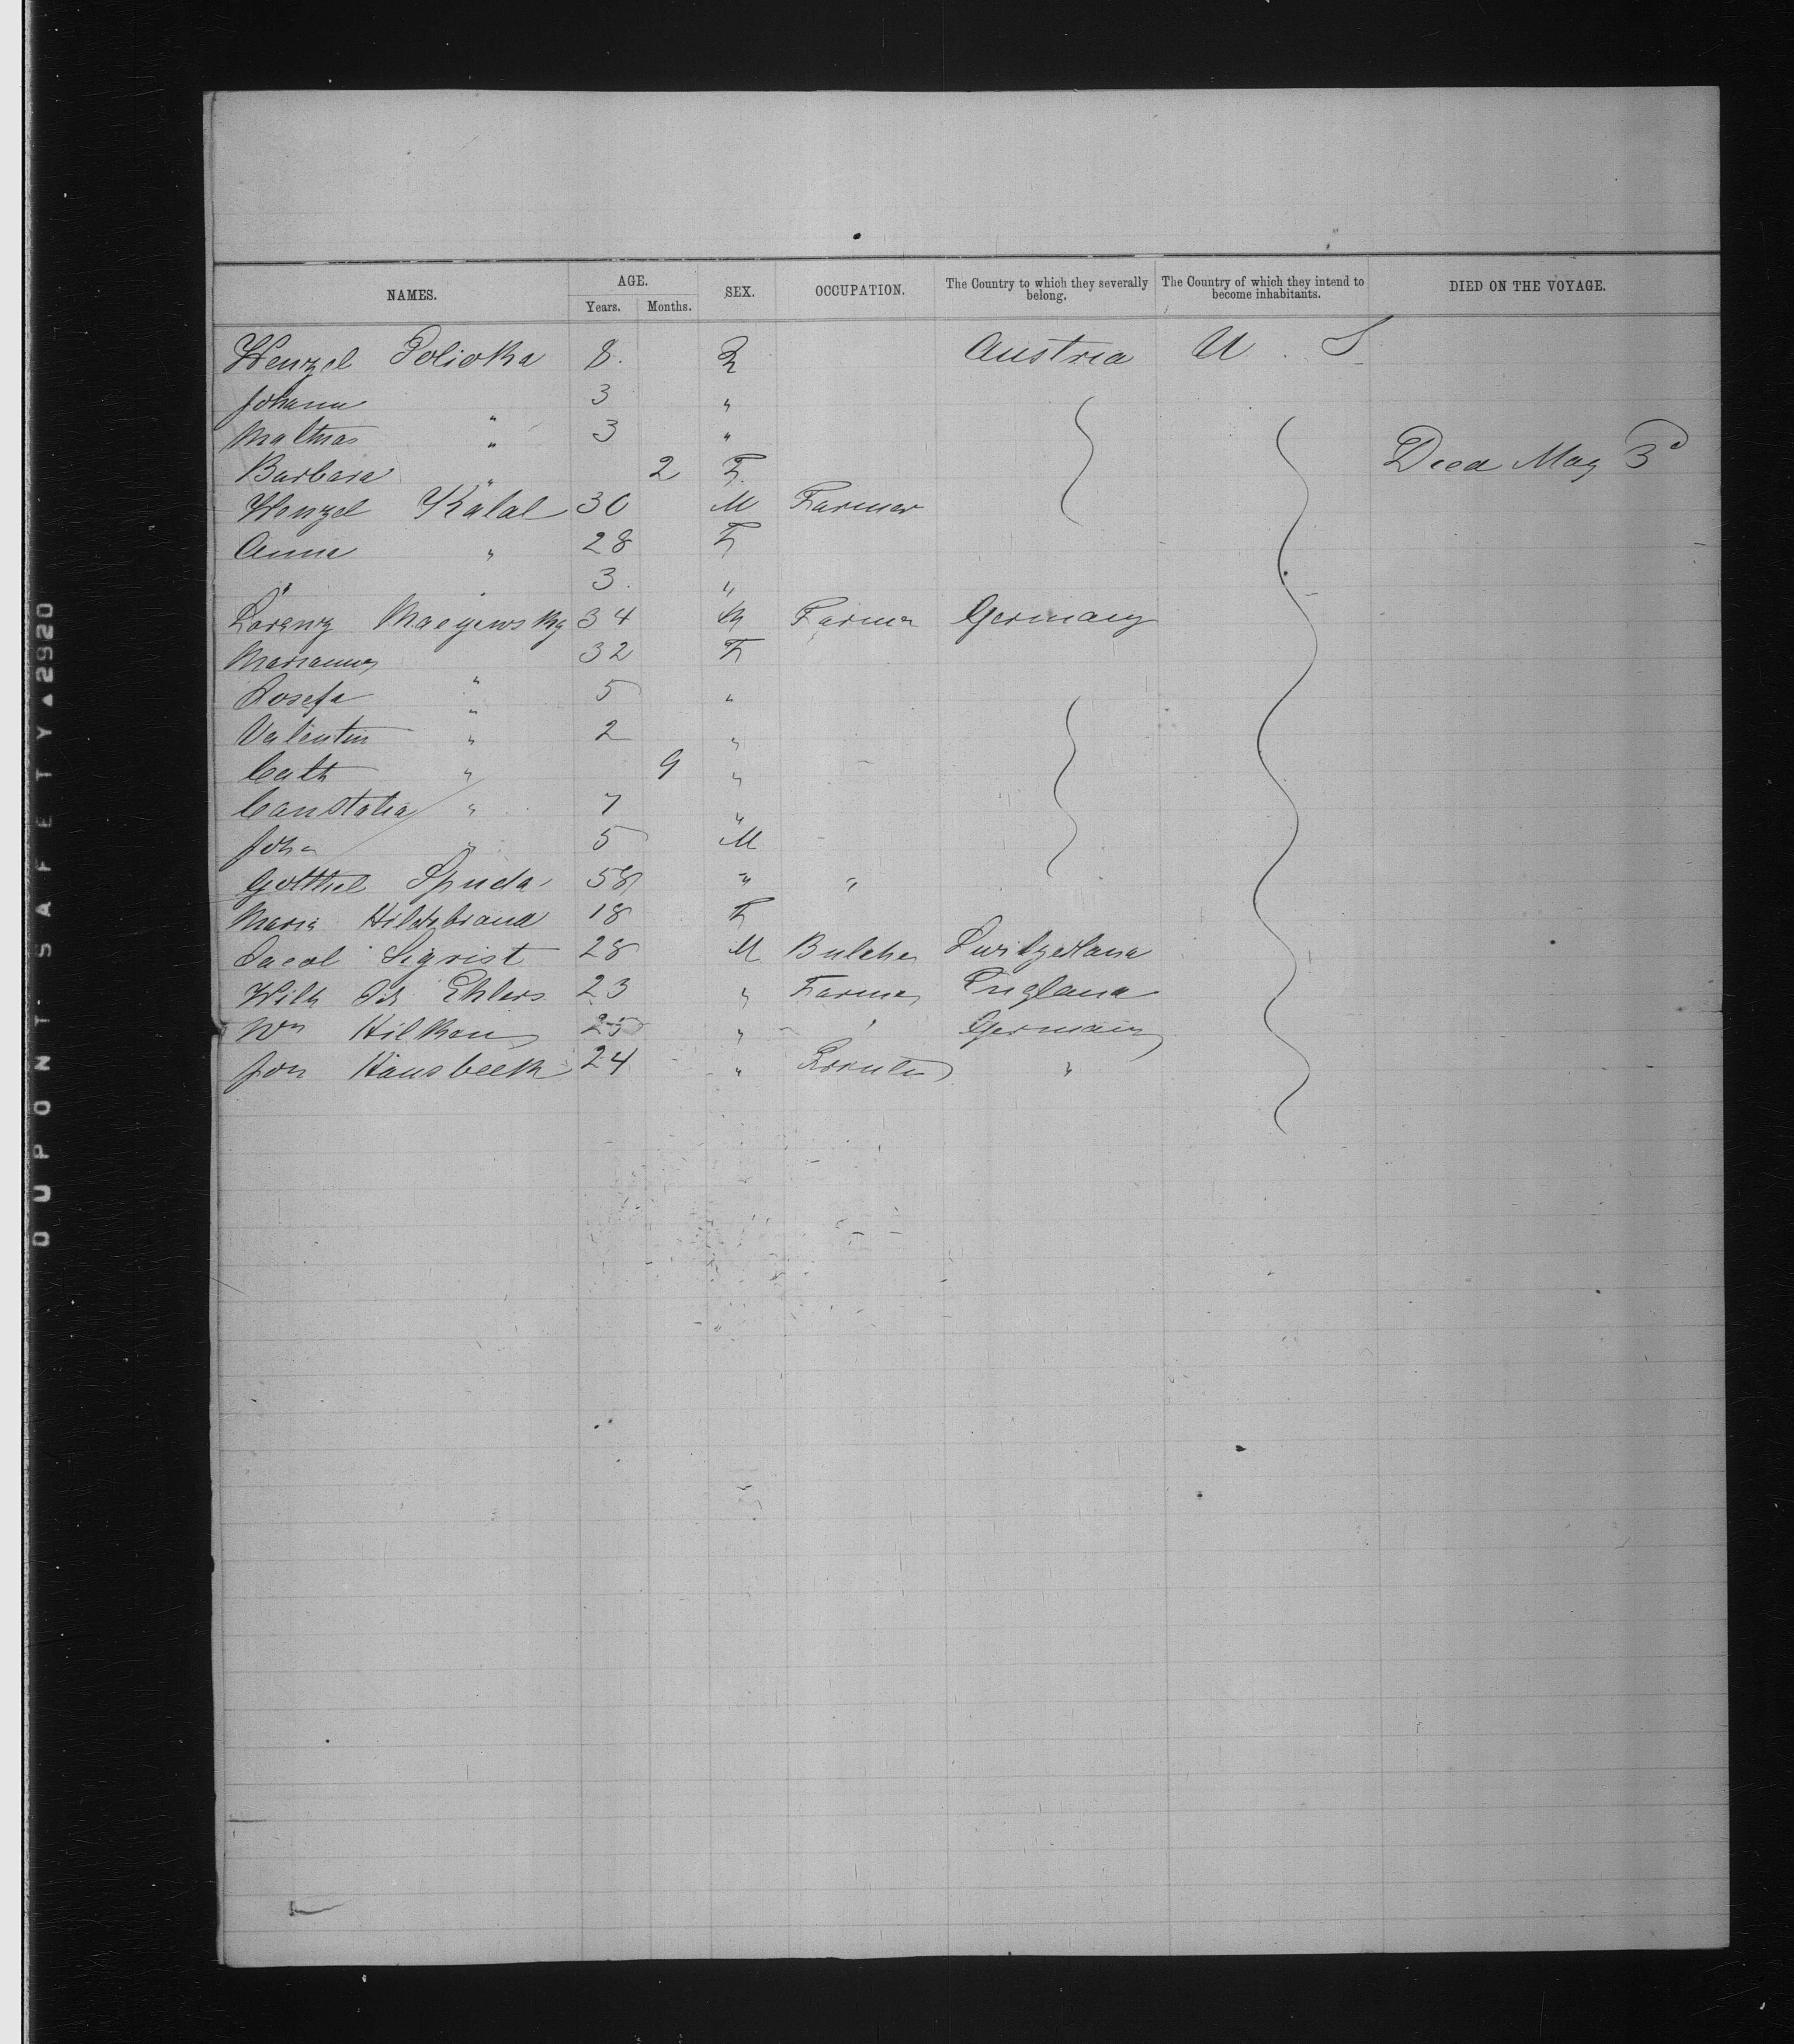 NAMES. AGE. SEX. OCCUPATION. The Country to which they severally belong. The Country of which they intend to become inhabitants. DIED ON THE VOYAGE.
Years. Months.
Wenzel Polivka 8. Austria U. S
Johann 3 "
Mathias " 3 "
Barbara " 2 F. Died May 3d
Wenzel Kalal 30 M Farmer
Anna " 28 F
" " 3. "
Lorenz Macyewsky 34 M Farmer Germany
Marianna 32 F
Josefa " 5 "
Valentin " 2 "
Cath " 9 "
Constalia " 7 "
John " 5 M
Gottlieb Spuda 58 " "
Maria Hildebrand 18 F
Jacob Sigrist 28 M Butcher Switzerland
Wilh Ehlers 23 " Farmer England
Wm Hilken 25 " " Germany
Joh Hausbeck 24 " "
DUPONT SAFETY ▲2920